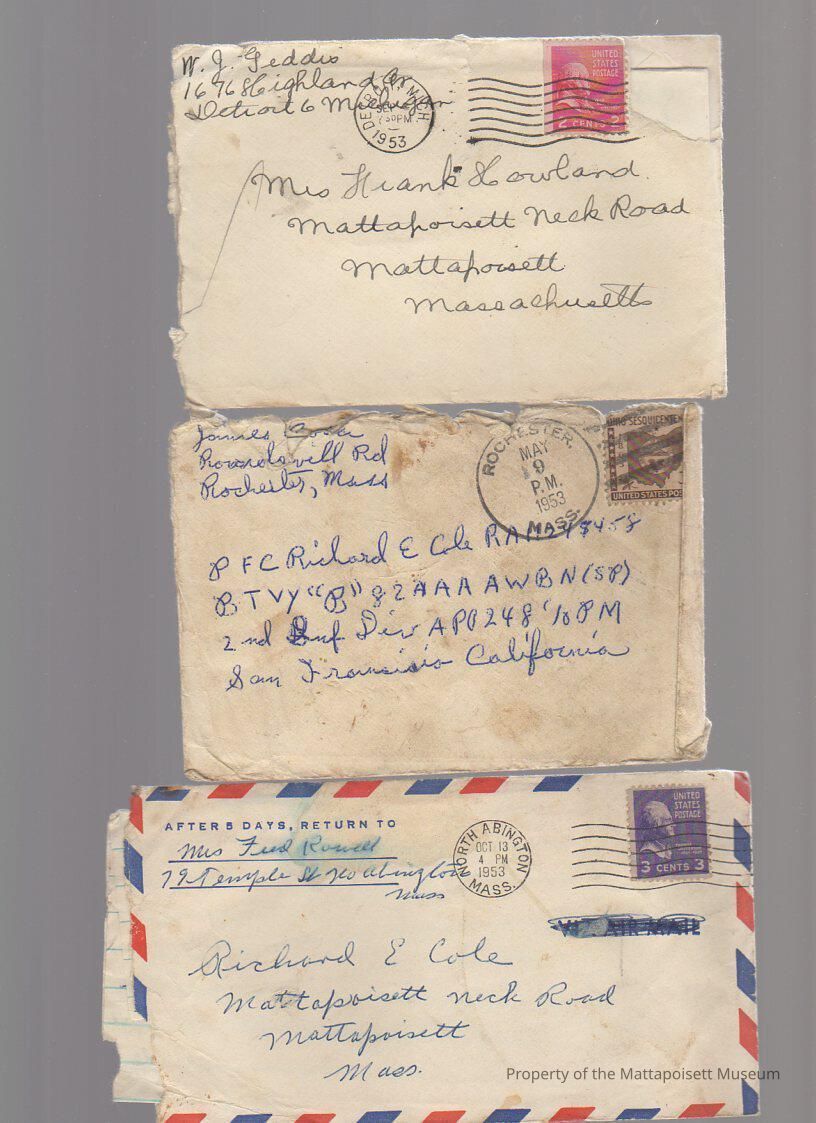 W. J. Geddis
1676 Highland Av
Detroit 6 Michigan
DETROIT, MICH
SEP
30 PM
1953
UNITED
STATES
POSTAGE
2 CENTS 2
Mrs Frank Howland
Mattapoisett Neck Road
Mattapoisett
Massachusetts
James
Rounsevill Rd
Rochester, Mass
ROCHESTER,
MAY
9
P.M.
1953
MASS.
OHIO SESQUICENTEN
UNITED STATES POS
PFC Richard E Cole RA
BTVY "B" 82 AAA AWBN (SP)
2nd Inf Div APO 248 % PM
San Francisio California
AFTER 5 DAYS, RETURN TO
Mrs Fred Rowell
79 Temple St No Abington
Mass
NORTH ABINGTON
OCT 13
4 PM
1953
MASS.
UNITED
STATES
POSTAGE
3 CENTS 3
VIA AIR MAIL
Richard E Cole
Mattapoisett Neck Road
Mattapoisett
Mass.
Property of the Mattapoisett Museum